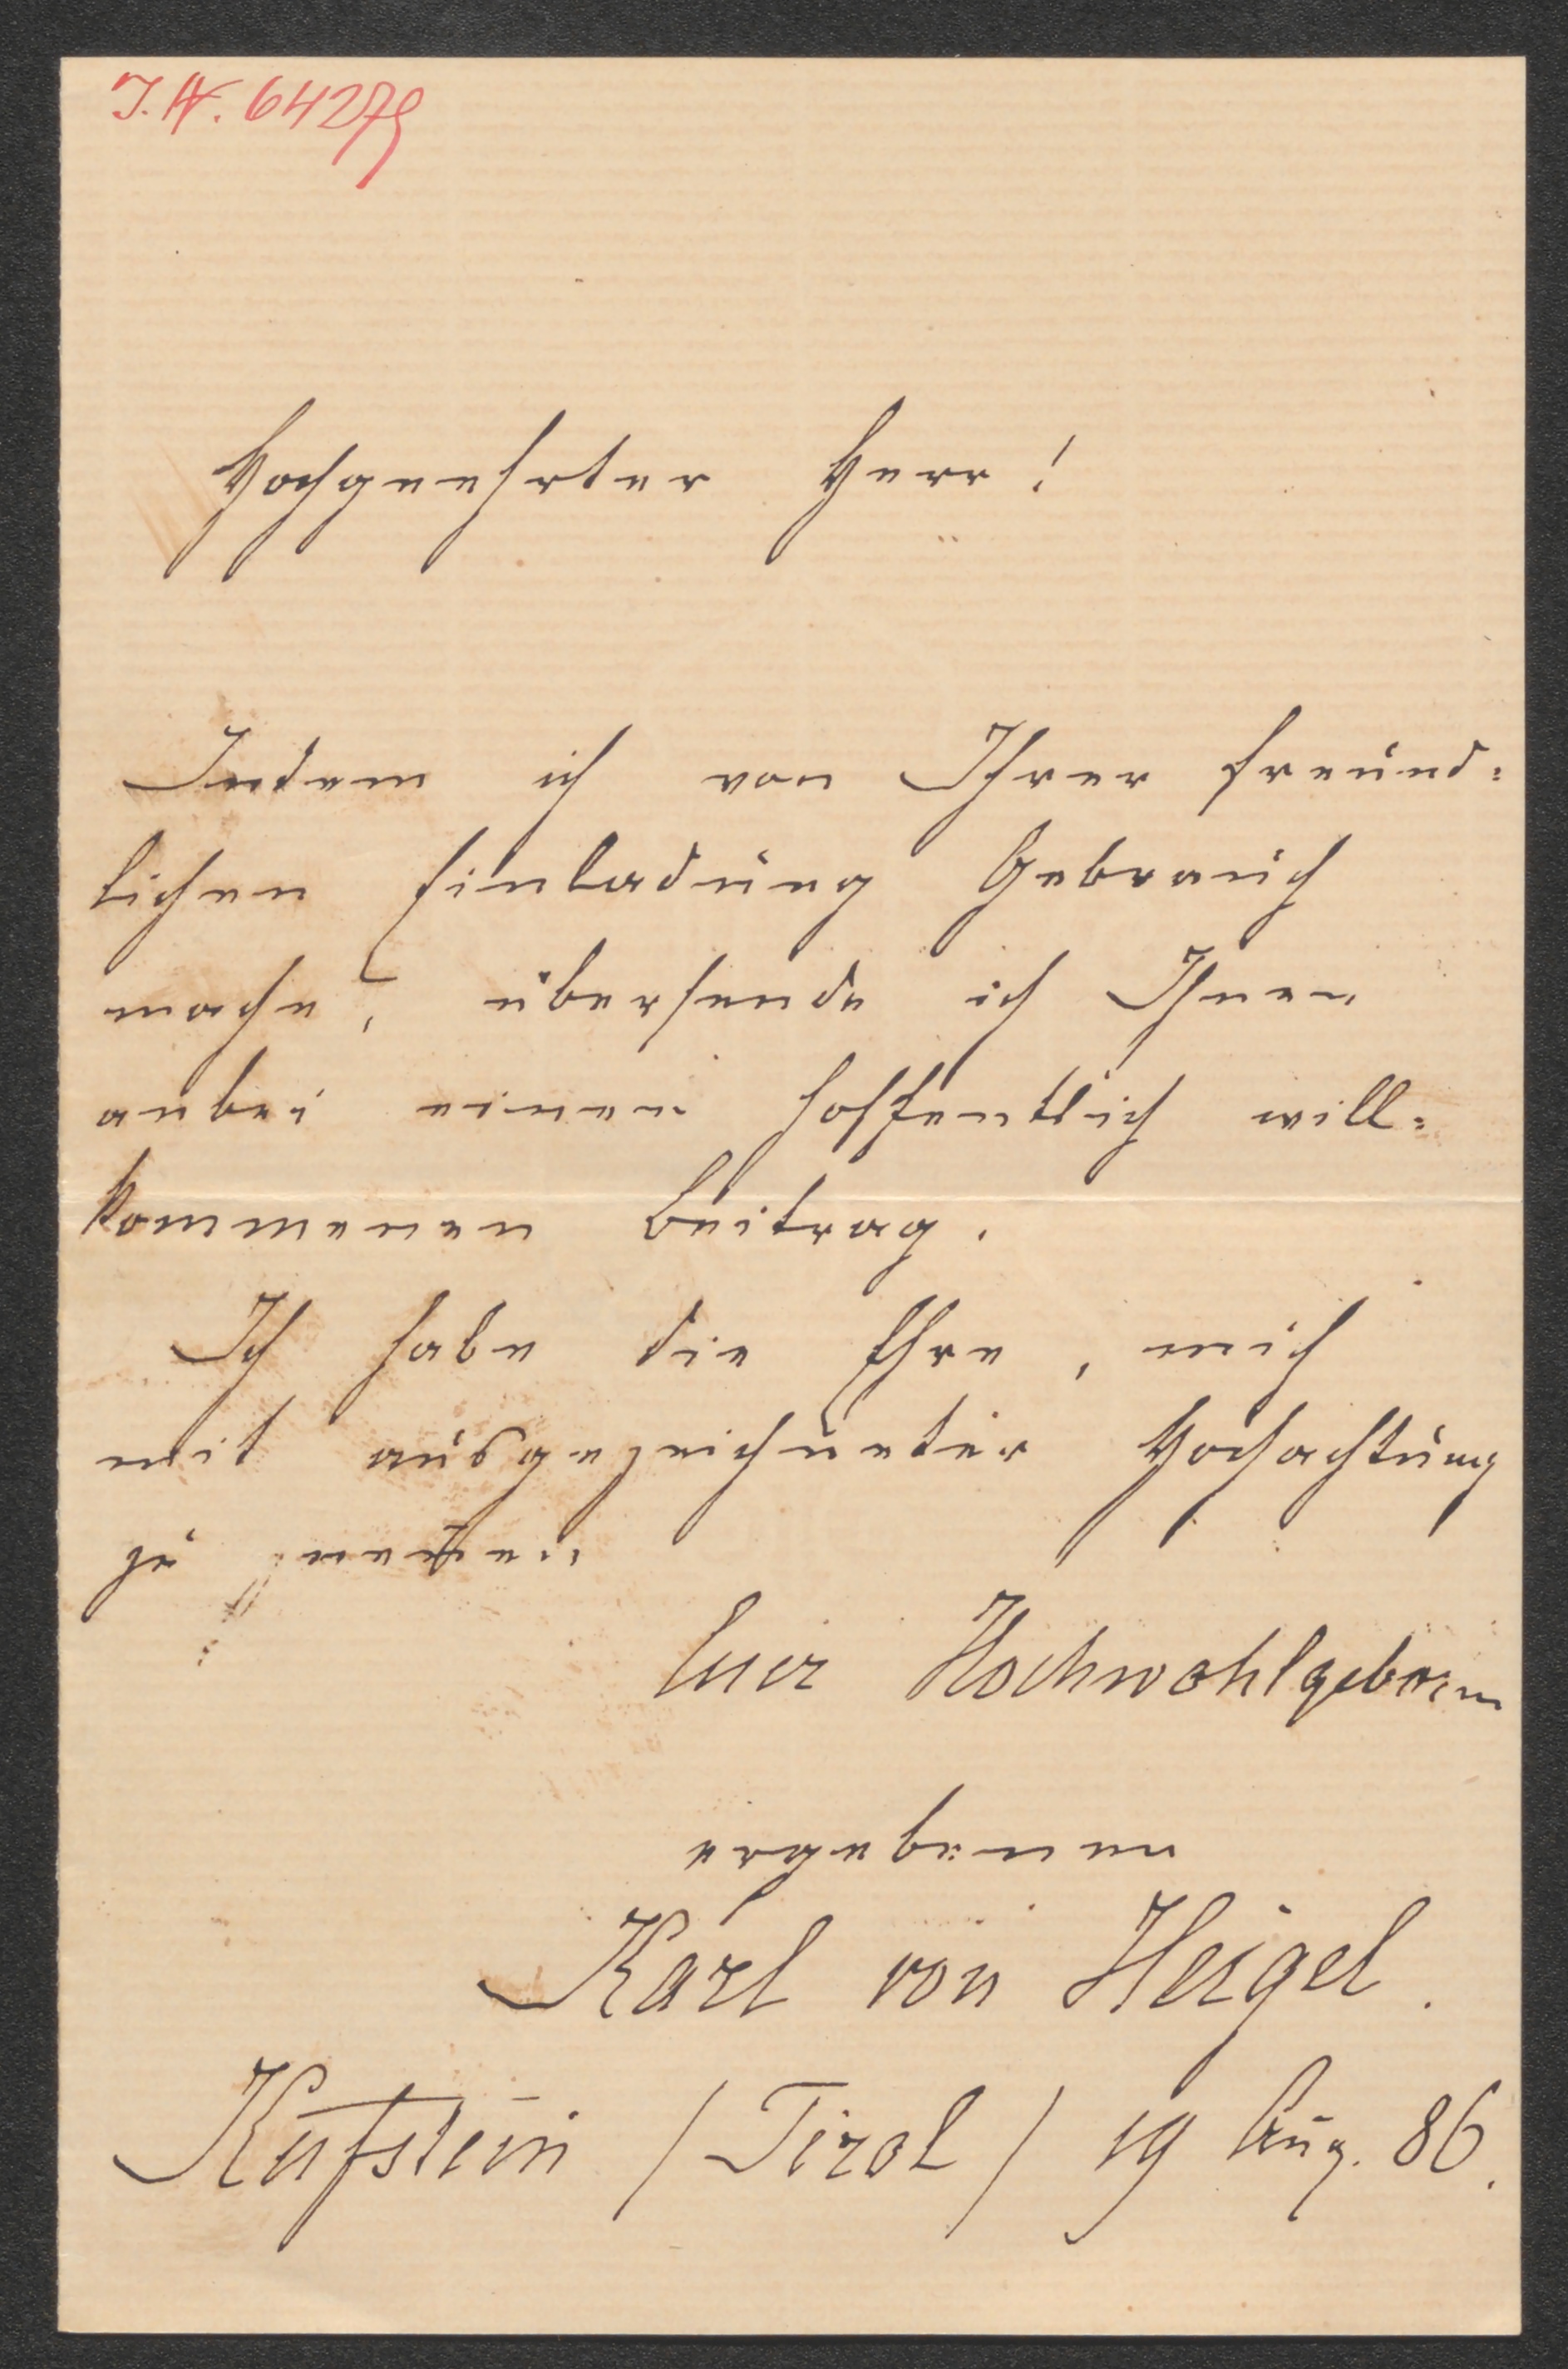 I.N. 64279
Hochgeehrter Herr!
Indem ich von Ihrer freund=
lichen Einladung Gebrauch
mache, übersende ich Ihnen
anbei einen hoffentlich will=
kommenen Beitrag.
Ich habe die Ehre, mich
mit ausgezeichneter Hochachtung
zu nennen
Euer Hochwohlgeboren
ergebenen
Karl von Heigel.
Kufstein /Tirol/ 19 Aug. 86.